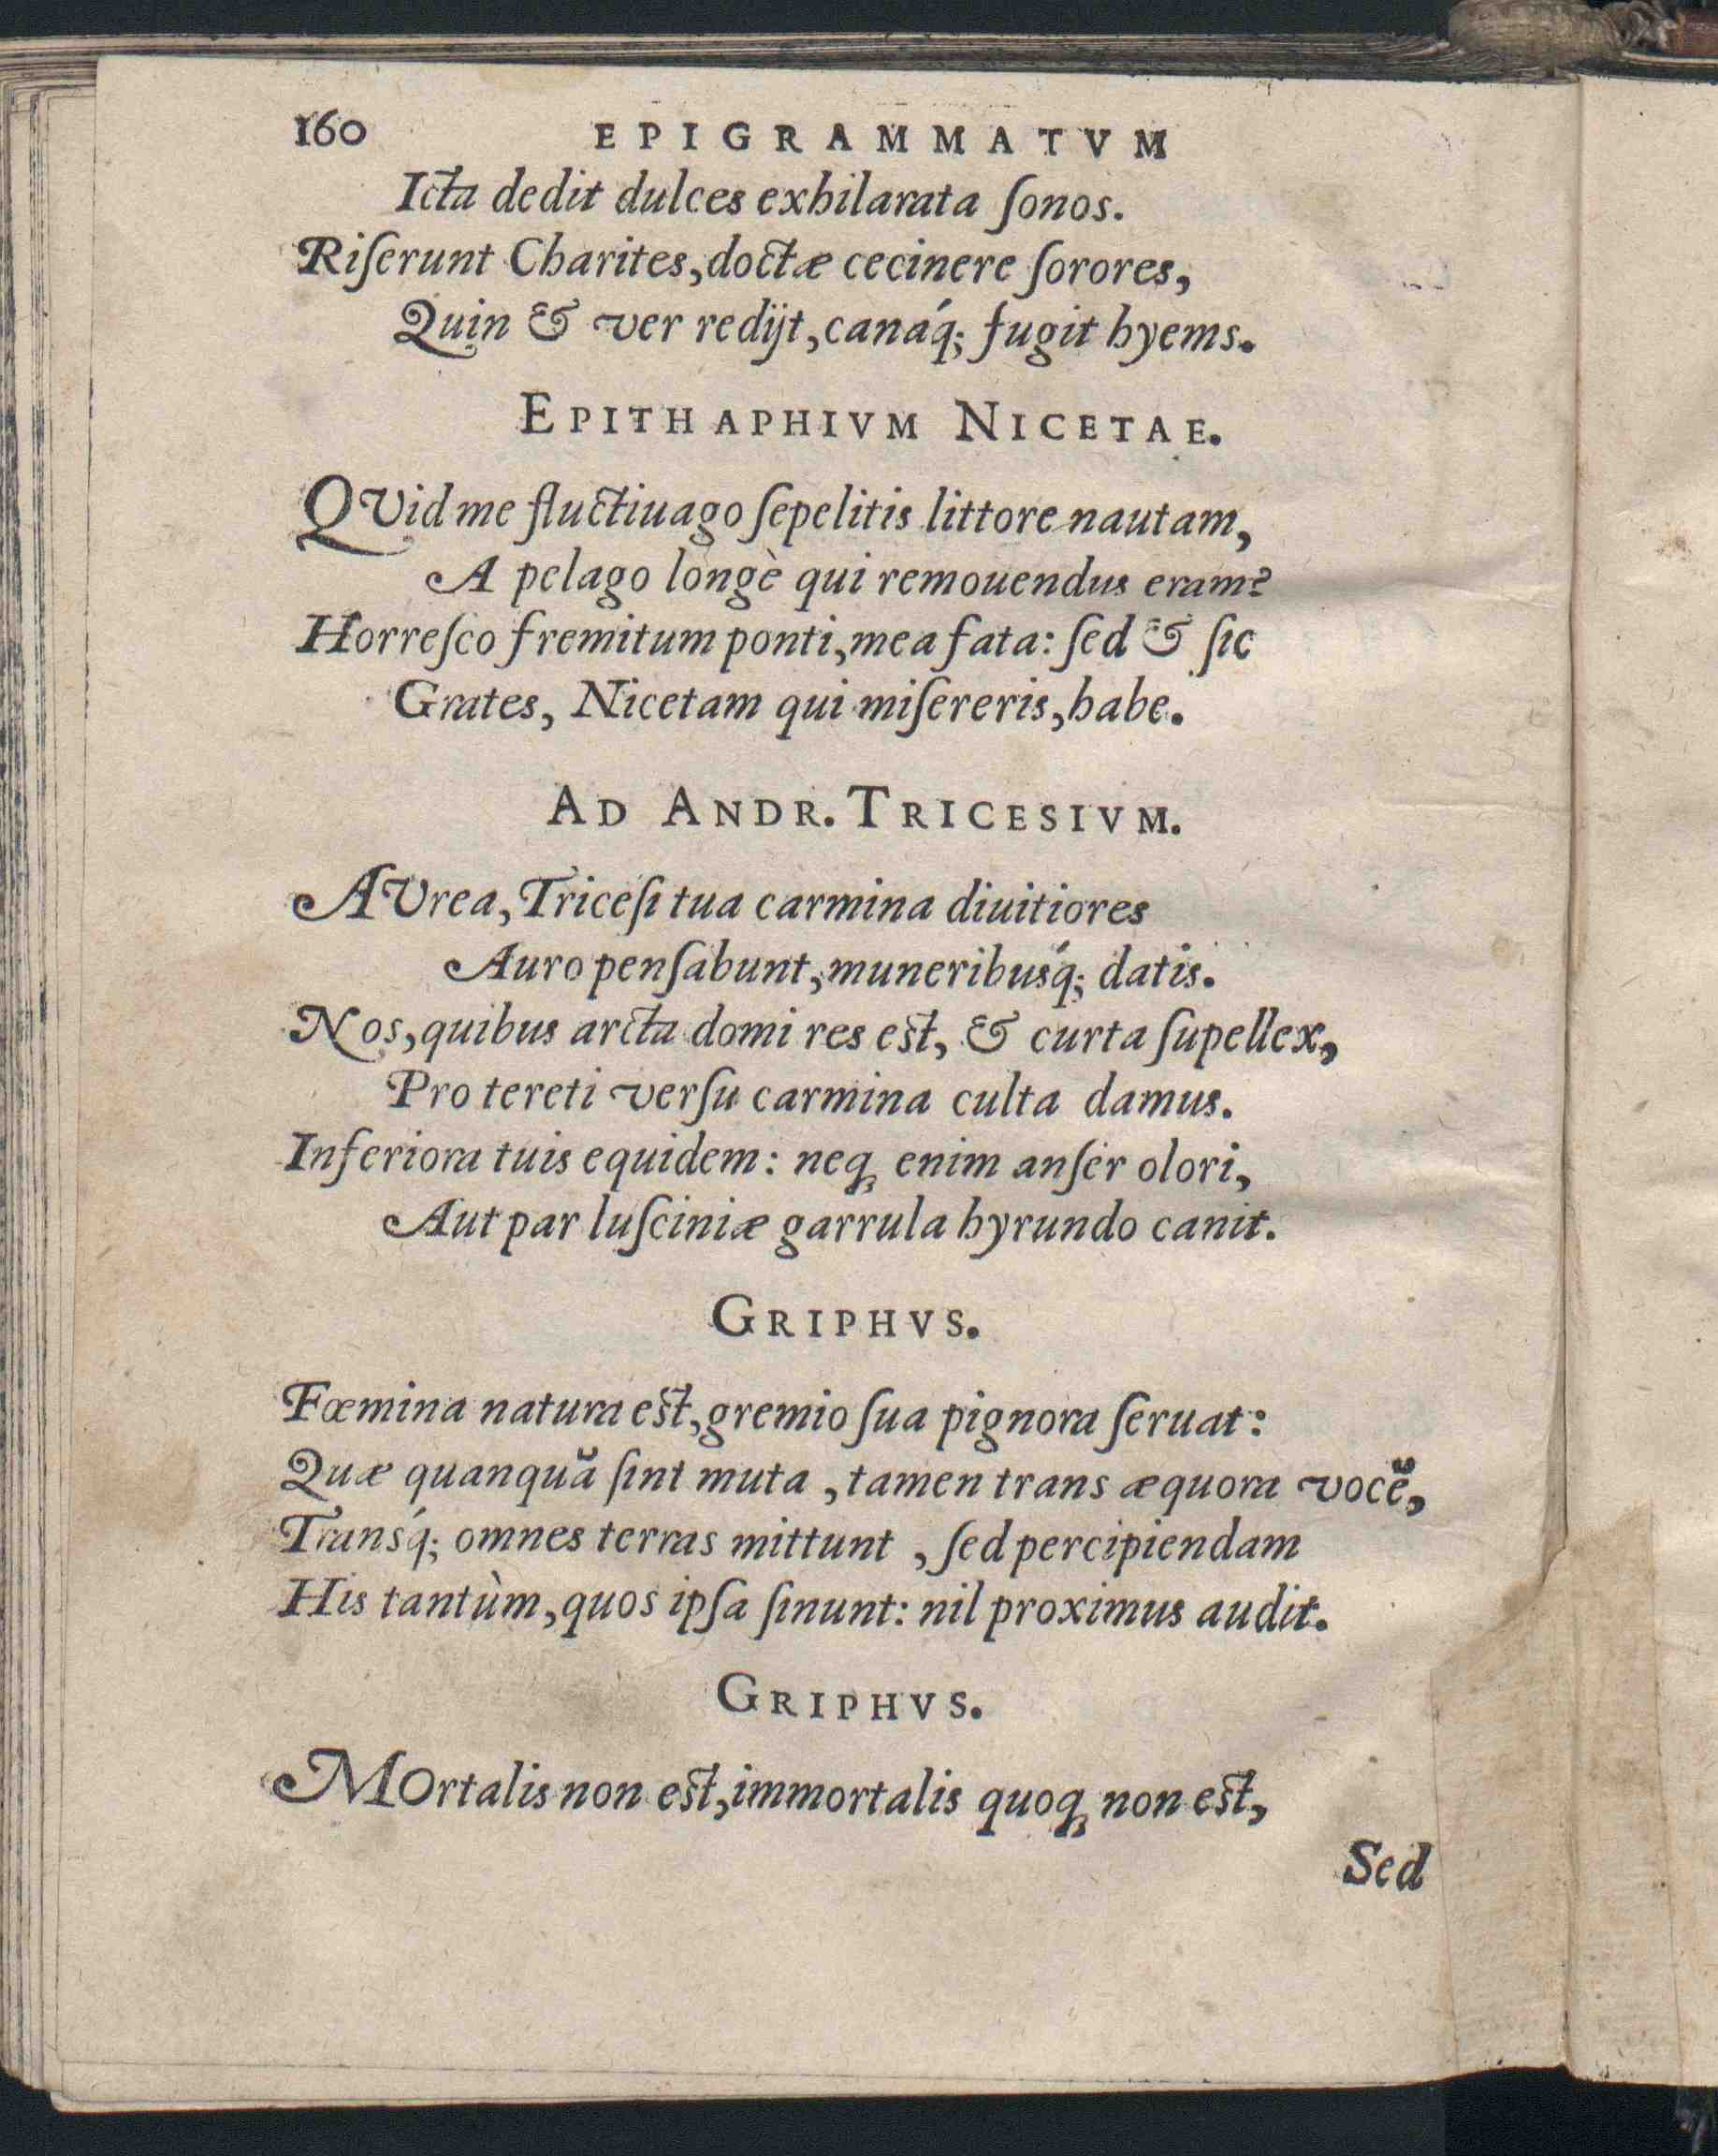 160 EPIGRAMMATVM
Icta dedit dulces exhilarata ſonos.
Riſerunt Charites, doctæ cecinere ſorores,
Quin & ver redijt, canaq́; fugit hyems.
EPITHAPHIVM NICETAE.
QVid me fluctiuago ſepelitis littore nautam,
A pelago longè qui remouendus eram?
Horreſco fremitum ponti, mea fata: ſed & ſic
Grates, Nicetam qui miſereris, habe.
AD ANDR. TRICESIVM.
AVrea, Triceſi tua carmina diuitiores
Auro penſabunt, muneribusq́; datis.
Nos, quibus arcta domi res est, & curta ſupellex,
Pro tereti verſu carmina culta damus.
Inferiora tuis equidem: neqꝫ enim anſer olori,
Aut par luſciniæ garrula hyrundo canit.
GRIPHVS.
Fœmina natura est, gremio ſua pignora ſeruat:
Quæ quanquã ſint muta, tamen trans æquora vocẽ,
Transq́; omnes terras mittunt, ſed percipiendam
His tantùm, quos ipſa ſinunt: nil proximus audit.
GRIPHVS.
MOrtalis non est, immortalis quoqꝫ non est,
Sed